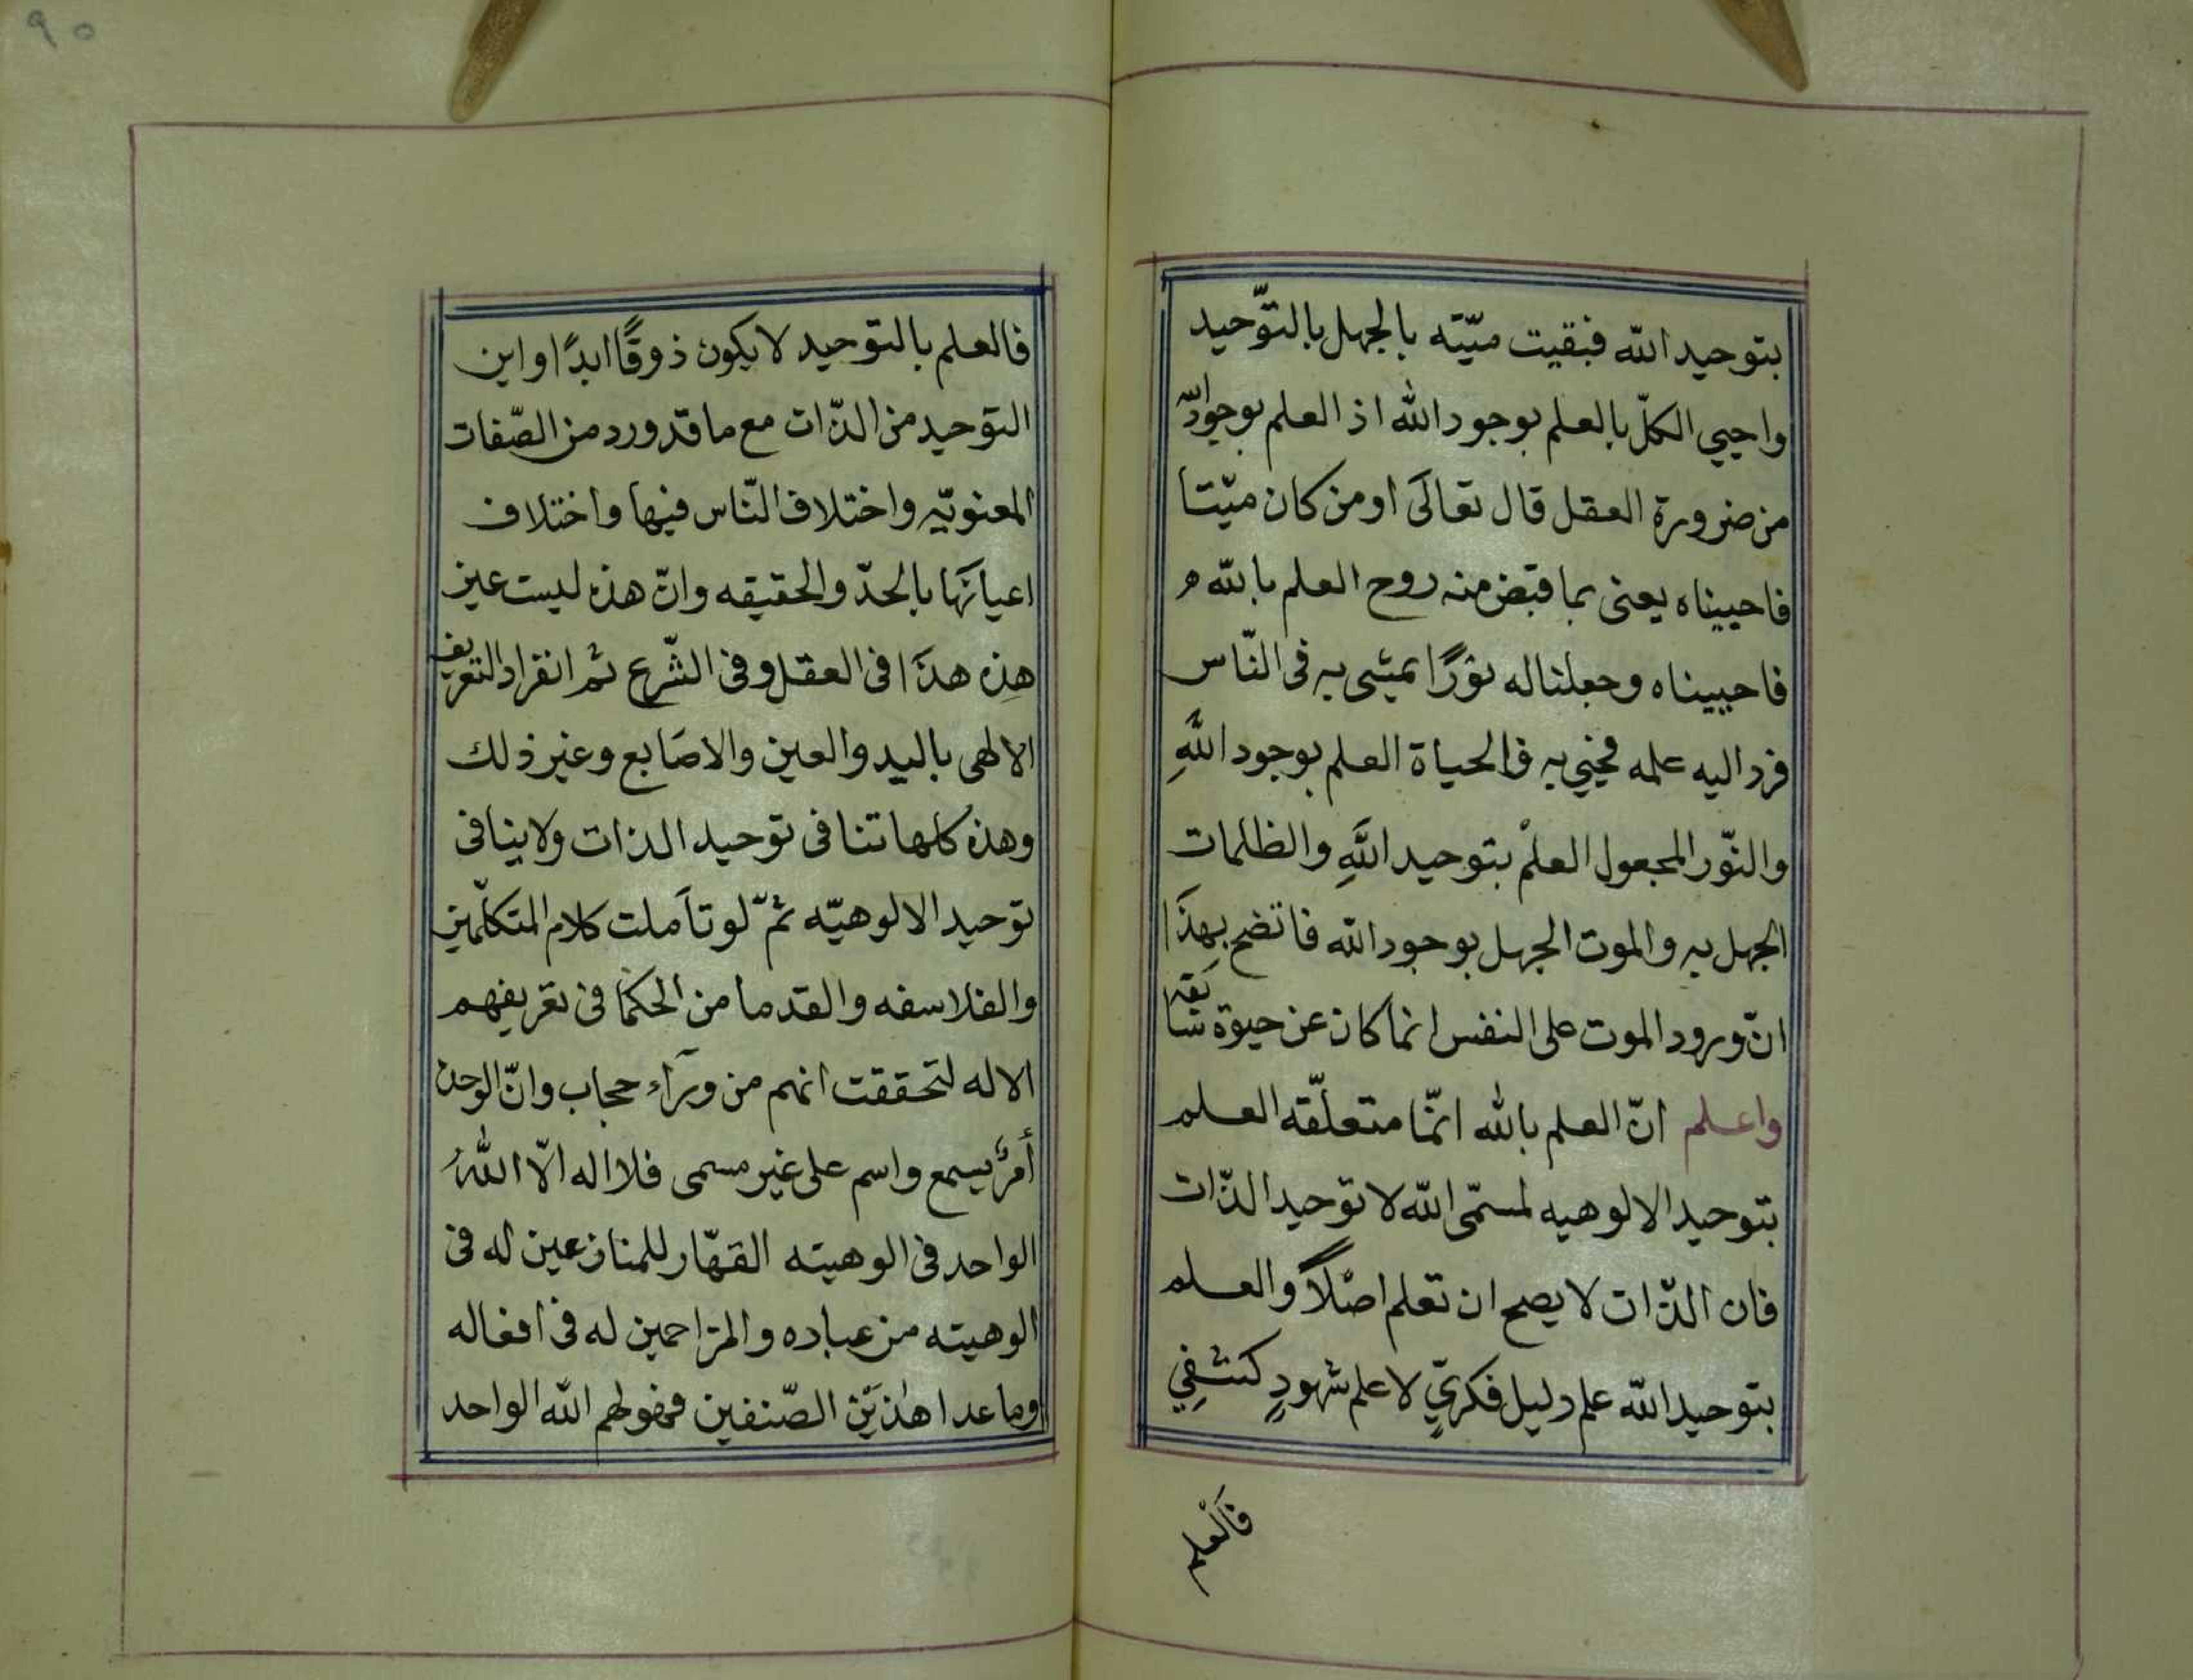 بتوحيد الله فبقيت ميّته بالجهل بالتوّحيد
واحيي الكلّ بالعلم بوجود الله اذ العلم بوجود الله
من ضرورة العقل قال تعالَى اومن كان ميّتا
فاحييناه يعنى بما قبض منه روح العلم بالله م
فاحييناه وجعلنا له نوُرًا يمشى به فى النّاس
فرد اليه علمه فحيي به فالحياة العلم بوجود اللهِ
والنّور المجعول العلمْ بتوحيد اللهِ والظلمات
الجهل به والموت الجهل بوجود الله فاتضح بهذَا
انّ ورود الموت على النفس انما كان عن حيوة سَابَقه
واعلم انّ العلم بالله انمّا متعلّقه العلم
بتوحيد الالوهيه لمسمّى الله لا توحيد الذّات
فان الذّات لا يصح ان تعلم اصْلاً والعلم
بتوحيد الله علم دليل فكريّ لا علم شهودٍ كشفِي
فَالْعلم
٩٥
فالعلم بالتوّحيد لا يكون ذوقًا ابدًا واين
التوحيد من الذّات مع ما قد ورد من الصّفات
المعنويّه واختلاف النّاس فيها واختلاف
اعيانَهَا بالحدّ والحقيقه وانّ هذه ليست عين
هذِه هذَا فى العقل وفى الشّرع ثم انفراد التعريف
الالهى باليد والعين والاصَابع وغير ذلك
وهذه كلها تنافى توحيد الذات ولا ينافى
توحيد الالوهيّه ثمّ لو تأملت كلام المتكلّمين
والفلاسفه والقدما من الحكمَا فى تعريفهم
الاله لتحققت انهم من ورَآء حجاب وانّ الوحده
أمرٌ يسمع واسم على غير مسمى فلا اله الاّ اللهُ
الواحد فى الوهيته القهّار للمنازعين له فى
الوهيته من عباده والمزاحمين له فى افعاله
وما عدا هٰذَيْن الصّنفين فهو لهم الله الواحد